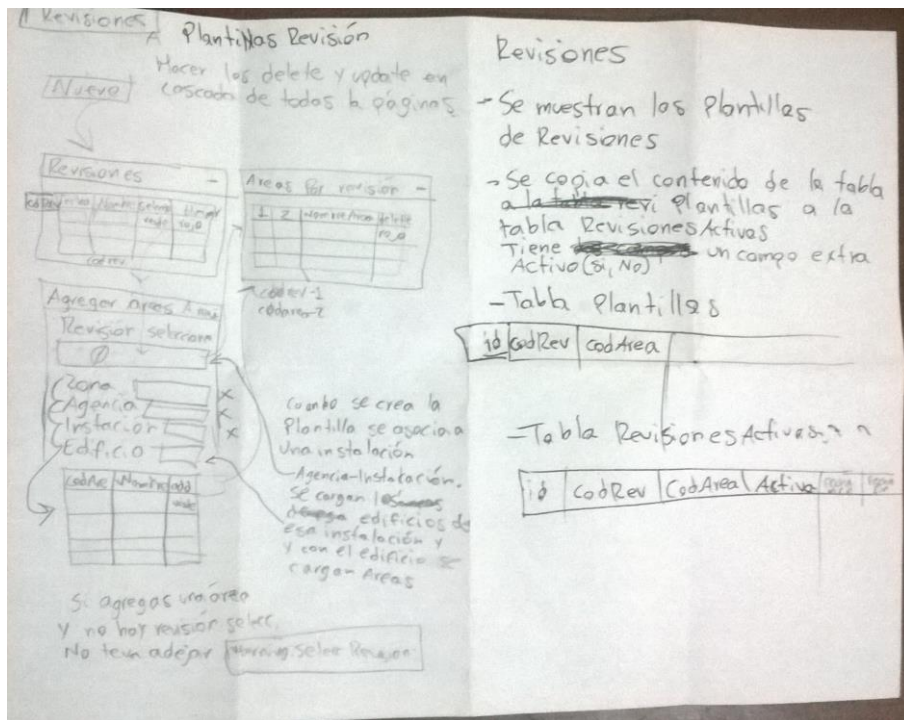 Revisiones
Plantillas Revisión
Hacer los delete y update en
cascada de todas la páginas
Nuevo
Revisiones
codRev Nombre
codrev
Areas Por revisión
1 2 Nombre Area delete
codrev-1
codarea-2
Agregar areas
Revisión seleccion
0
Zona
Agencia
Instacion
Edificio
Nombre add
Cuando se crea la
Plantilla se asocia a
Una instalación
Agencia-Instalación.
Se cargan los
edificios de
esa instalación y
y con el edificio se
cargan Areas
Si agregas una área
Y no hay revisión selec.
No te va a dejar Warning Selec Revision
Revisiones
- Se muestran las Plantillas
de Revisiones
- Se copia el contenido de la tabla
a la tabla revi Plantillas a la
tabla RevisionesActivas
Tiene un campo extra
Activo (Si, No)
- Tabla Plantillas
id codRev codArea
- Tabla RevisionesActivas
id CodRev CodArea Activa